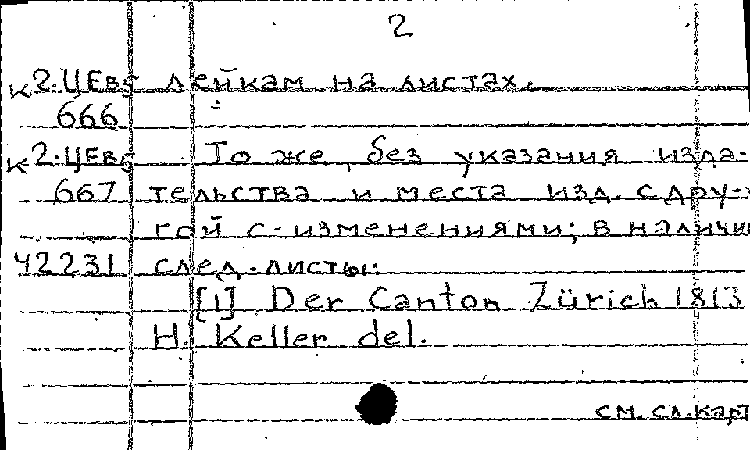 2
к2:ЦЕв5 лейкам на листах.
666
к2:ЦЕв5 То же, без указания изда-
667 тельства и места изд. с дру-
гой с-изменениями; в наличи
42231 след. листы:
[1] Der Canton Zürich 1813
H. Keller del.
см. сл. карт